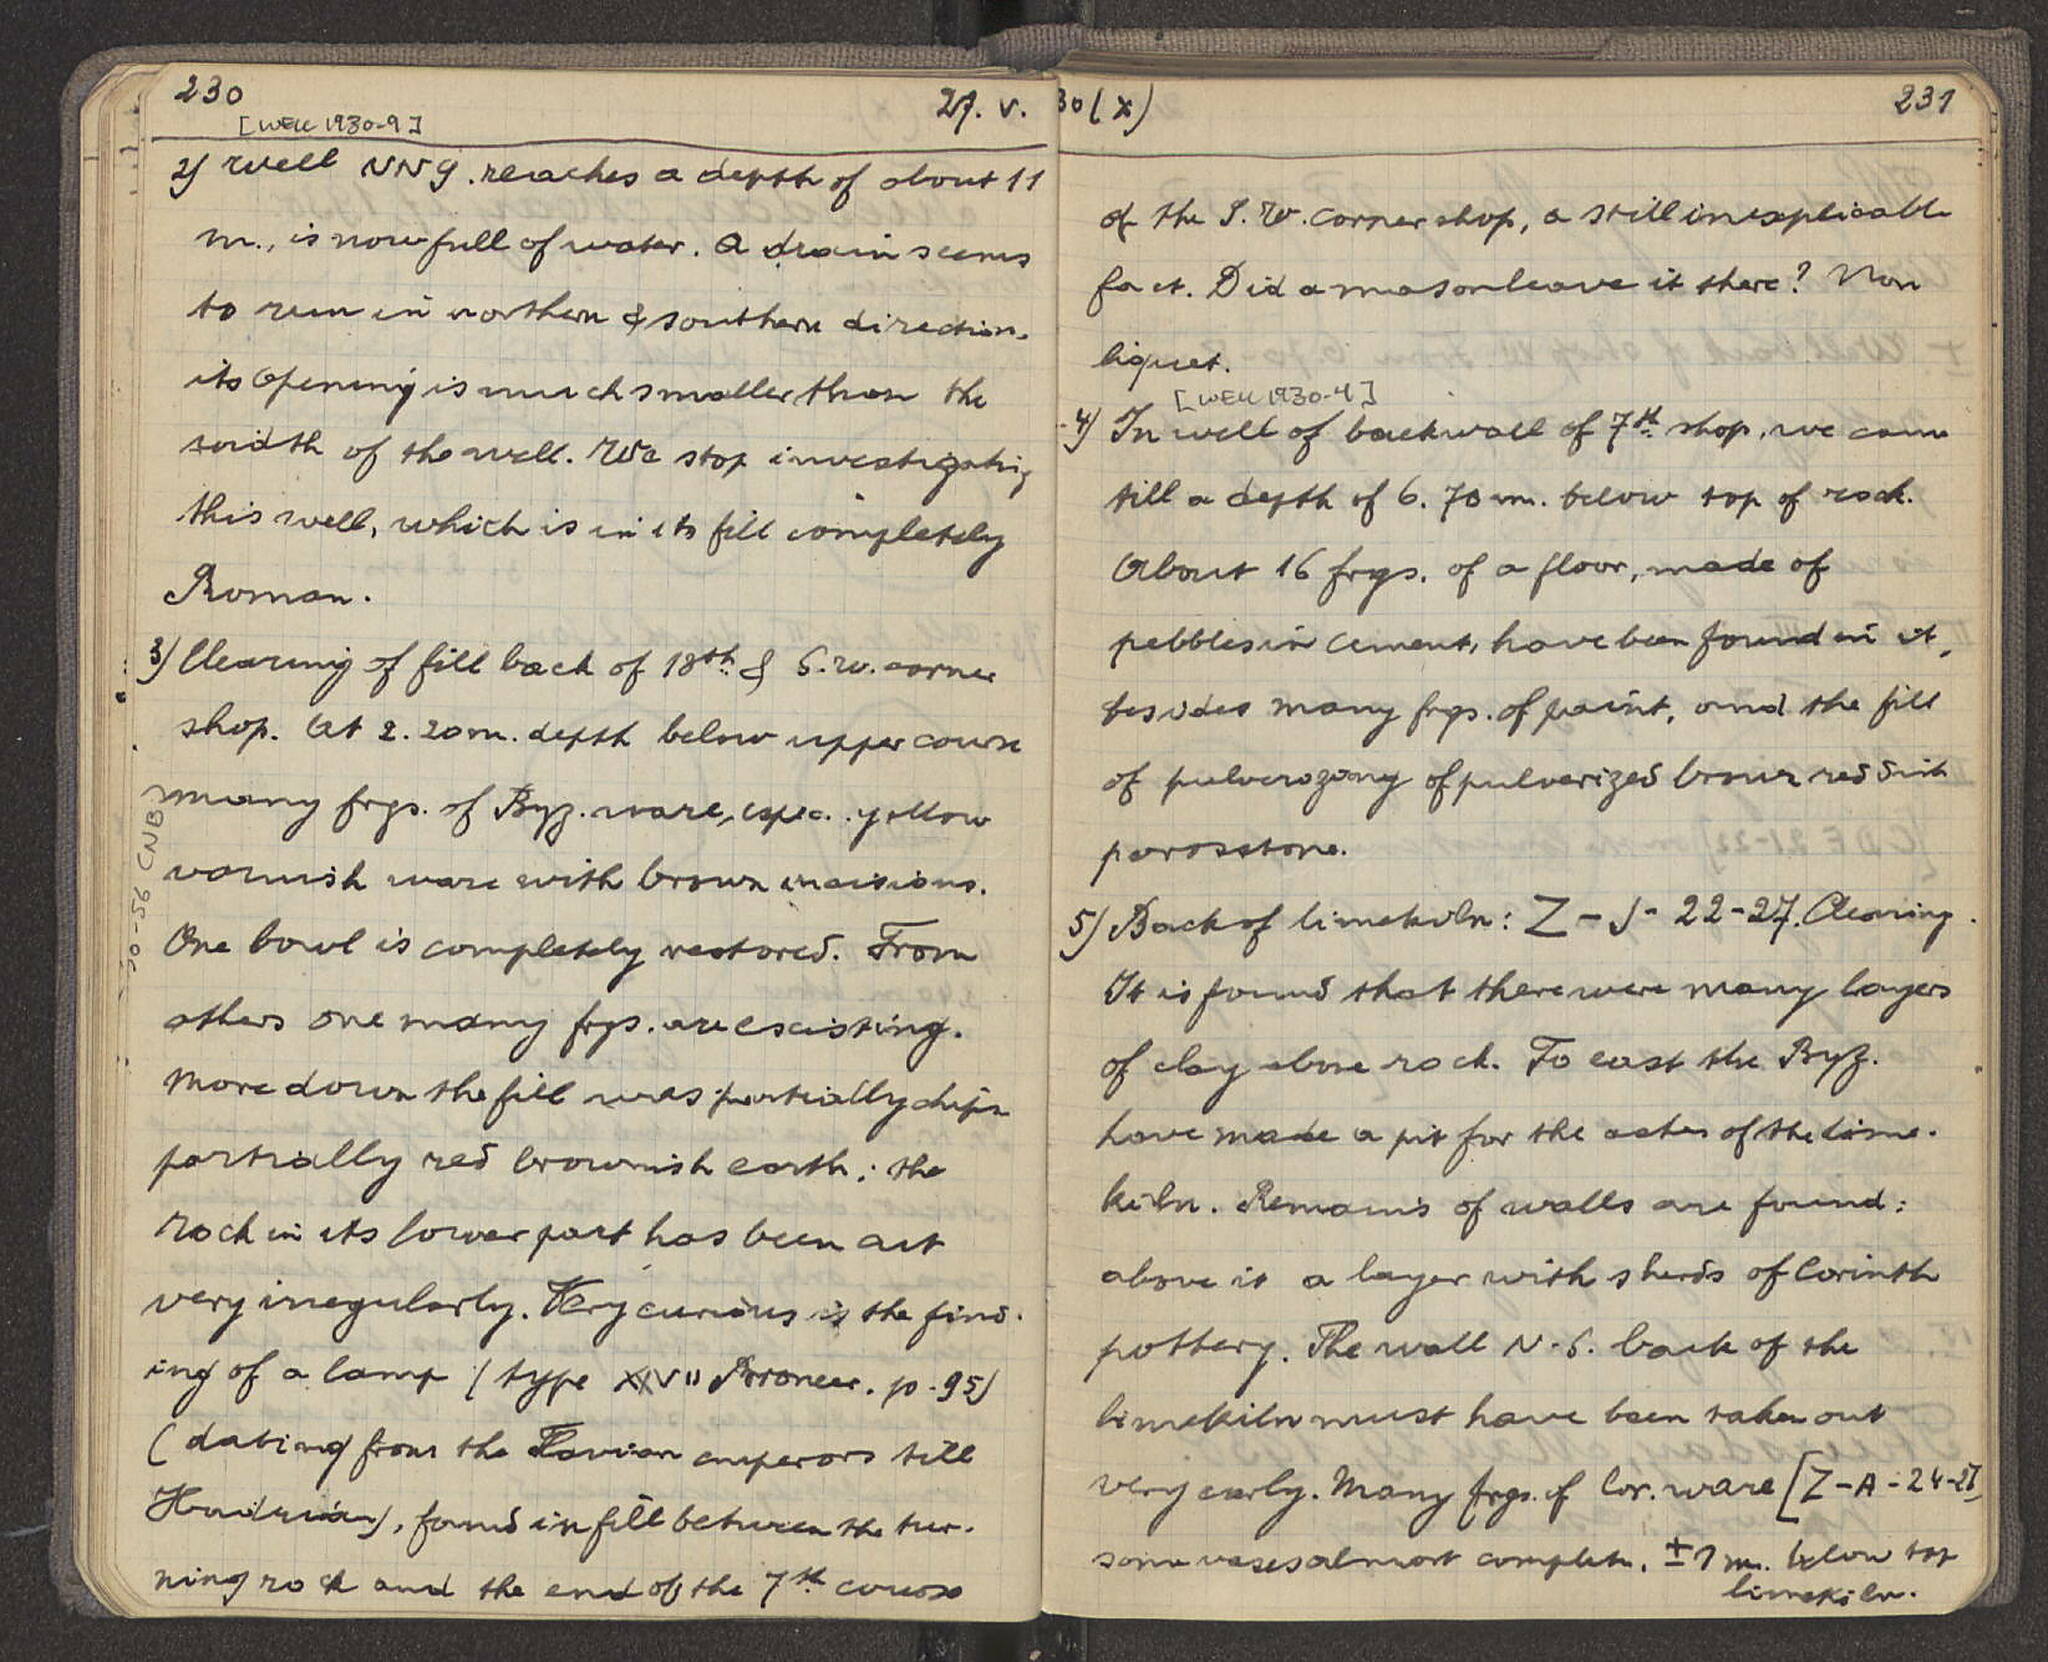 230
27. V. 30 (X)
231
[WELL 1930-9]
2) Well NN 9. reaches a depth of about 11
m., is now full of water. A drain seems
to run in northern & southern direction.
its opening is much smaller than the
width of the well. We stop investigating
this well, which is in its fill completely
Roman.
3) Clearing of fill back of 18th. & S.W. corner
shop. At 2.20 m. depth below upper course
many frgs. of Byz. ware, espec. yellow
varnish ware with brown incisions.
One bowl is completely restored. From
others one many frgs. are existing.
More down the fill was partially chips
partially red brownish earth; the
rock in its lower part has been cut
very irregularly. Very curious is the find-
ing of a lamp (type XXVII Broneer. p. 95)
(dating from the Flavian emperors till
Hadrian), found in fill between the tur-
ning rock and the end of the 7th course
30-56 CNB
of the S.W. corner shop, a still inexplicable
fact. Did a mason leave it there? Non
liquet.
[WELL 1930-4]
4) In well of backwall of 7th. shop, we came
till a depth of 6.70 m. below top of rock.
About 16 frgs. of a floor, made of
pebbles in cement, have been found in it,
besides many frgs. of paint, and the fill
of of pulverized brown red
porosstone.
5) Back of limekiln: Z - J - 22-27. Clearing.
It is found that there were many layers
of clay above rock. To east the Byz.
have made a pit for the of the lime-
kiln. Remains of walls are found:
above it a layer with sherds of Corinth
pottery. The wall N-S. back of the
limekiln must have been taken out
very early. Many frgs. of Cor. ware [Z-A-24-27,
some vases almost complete. ± 1 m. below top
limekiln.